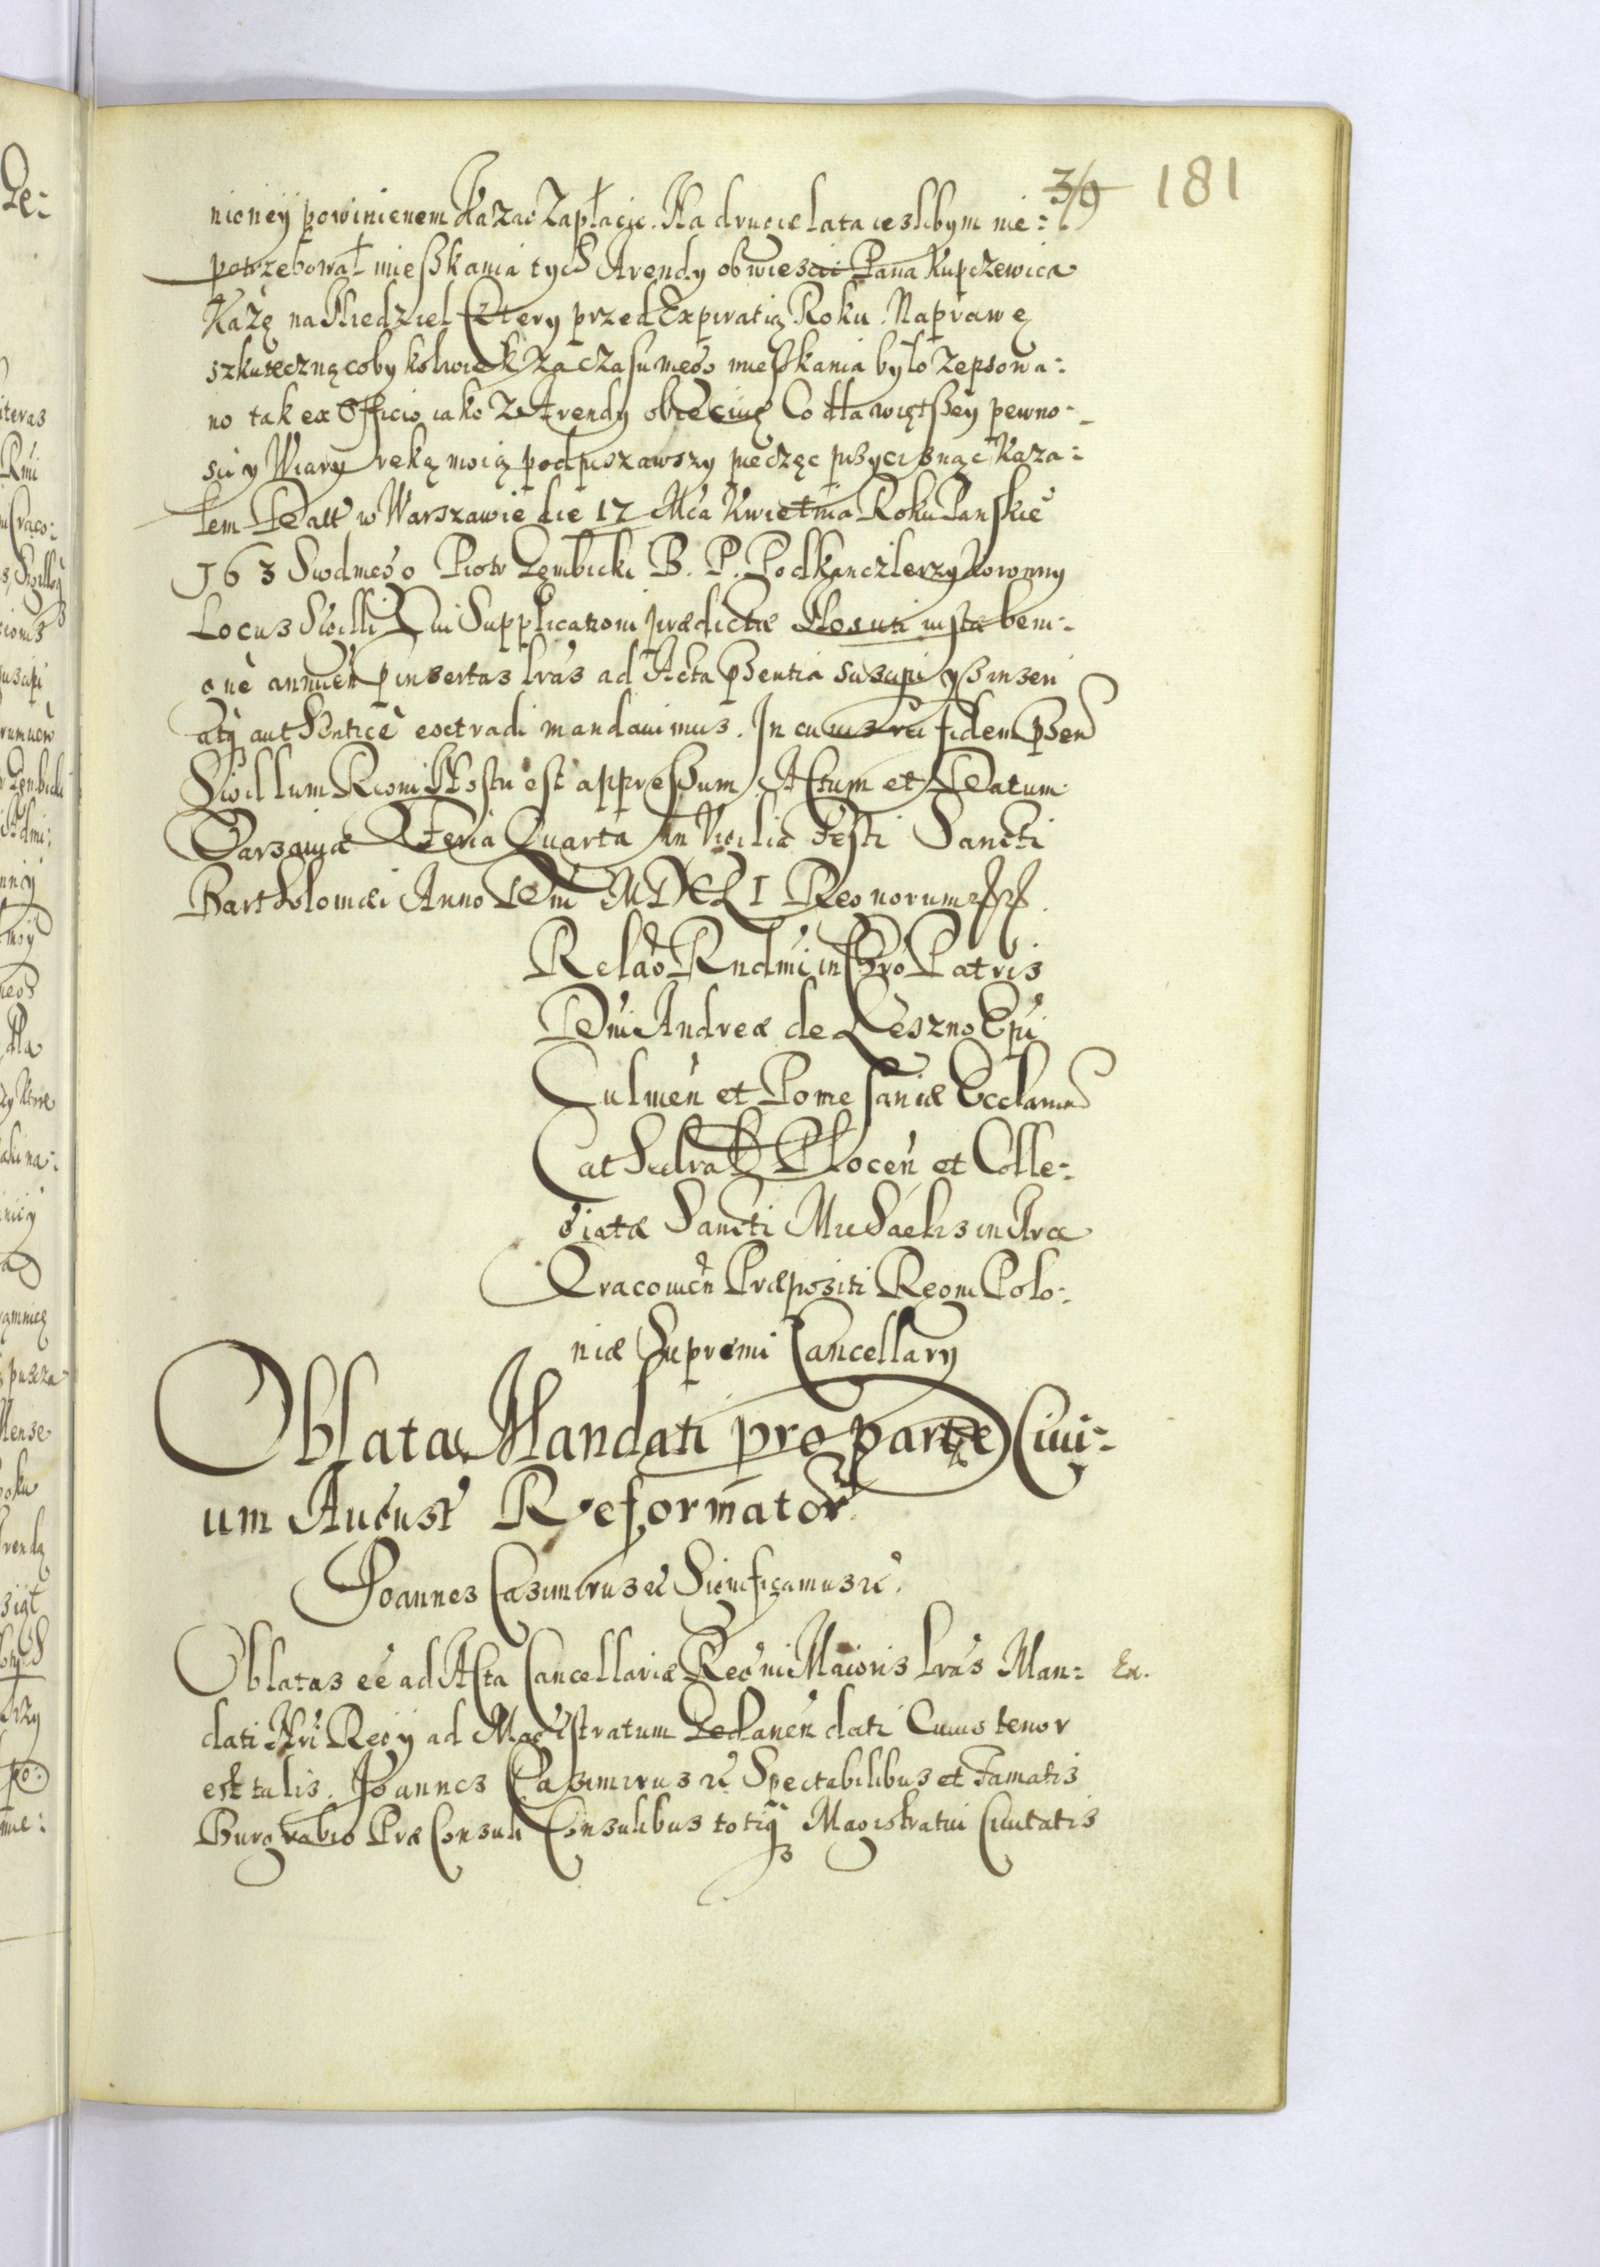 319 181
nioney powinienem kazac zapłacic. Na drugie lata ieslibym nie:
potrzebował mieszkania tych Arendy obwiescic Pana Kupczewica
Każę na Niedziel Cztery przed Expiratią Roku. Naprawę
szkuteczną coby kolwiek za czasu mego mieszkania było zepsowa:
no tak ex Officio iako z Arendy obiecuię Co dla większey pewno-
sci y Wiary ręką moią podpiszawszy pieczęc przycisnąc kaza:
łem Datt w Warszawie die 17 Mca Kwietnia Roku Panskie
163 Siodmego Piotr Gembicki B. P. Podkanczlerzy Koronny
Locus Sigilli Qui Supplicationi prædictæ Nos uti iustæ beni:
gne annuen pinsertas lras ad Acta psentia suscipi ys inseri
atq authentice extradi mandauimus. In cuius rei fidem psen
Sigillum Regni Nostri est appressum Actum et Datum
Varsaviæ Feria Quarta in Vigilia Festi Sancti
Bartholomæi Anno Dni MDCLI Regnorum
Relao Rndmi in Chro Patris
Dni Andreæ de Leszno Epi
Culmen et Pomesaniæ Ecclarum
Cathedral Plocen et Colle:
giatæ Sancti Michaelis in Arce
Cracouien Præpositi Regni Polo:
niæ Supremi Cancellary
Oblata Mandati pro parte Ciui:
um August Reformator
Joannes Casimirus etc Significamus etc.
Oblatas eē ad Acta Cancellariæ Regni Maioris lras Man: Ex.
dati Nri Regy ad Magistratum Gedanen dati Cuius tenor
est talis. Joannes Casimirus etc Spectabilibus et Famatis
Burgrabio Præ Consuli Consulibus totiq Magistratui Ciuitatis